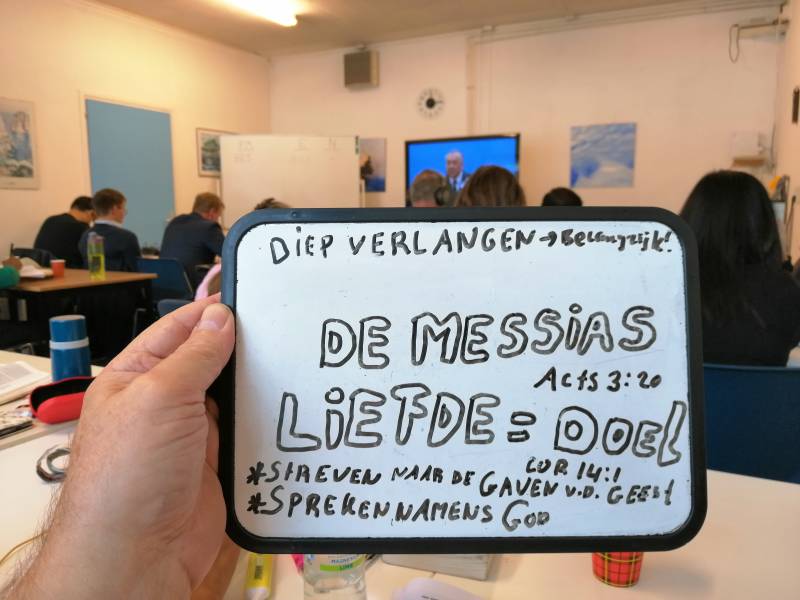 DIEP VERLANGEN → Belangrijk!
DE MESSIAS
Acts 3:20
LIEFDE = DOEL
COR 14:1
* STREVEN NAAR DE GAVEN V.D. GEEST
* SPREKEN NAMENS GOD